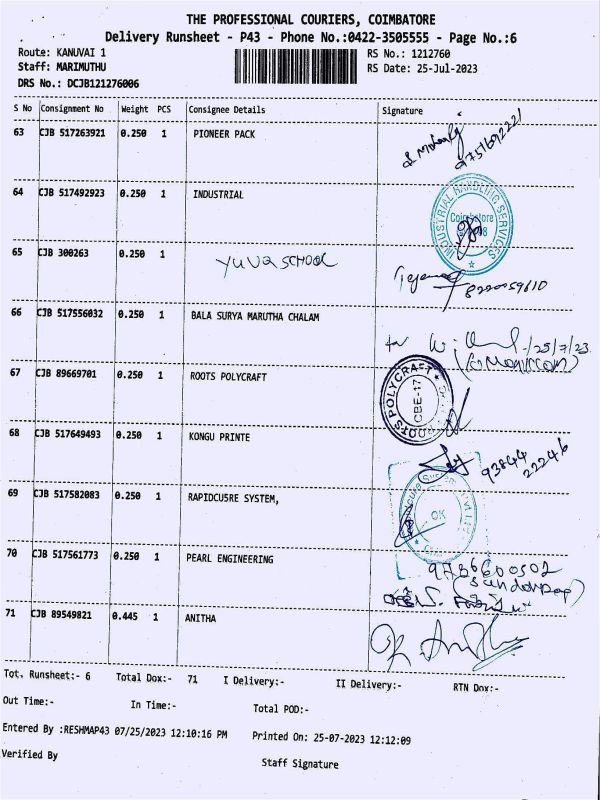 THE PROFESSIONAL COURIERS, COIMBATORE
Delivery Runsheet - P43 - Phone No.:0422-3505555 - Page No.:6
Route: KANUVAI 1 RS No.: 1212760
Staff: MARIMUTHU RS Date: 25-Jul-2023
DRS No.: DCJB121276006
S No Consignment No Weight PCS Consignee Details Signature
63 CJB 517263921 0.250 1 PIONEER PACK
64 CJB 517492923 0.250 1 INDUSTRIAL
INDUSTRIAL HANDLING SERVICES
Coimbatore
65 CJB 300263 0.250 1 YUVA SCHOOL
66 CJB 517556032 0.250 1 BALA SURYA MARUTHA CHALAM
25/7/23
67 CJB 89669701 0.250 1 ROOTS POLYCRAFT
ROOTS POLYCRAFT
CBE-17
68 CJB 517649493 0.250 1 KONGU PRINTE
93844
22246
69 CJB 517582083 0.250 1 RAPIDCU5RE SYSTEM,
OK
70 CJB 517561773 0.250 1 PEARL ENGINEERING
71 CJB 89549821 0.445 1 ANITHA
Tot. Runsheet:- 6 Total Dox:- 71 I Delivery:- II Delivery:- RTN Dox:-
Out Time:- In Time:- Total POD:-
Entered By :RESHMAP43 07/25/2023 12:10:16 PM Printed On: 25-07-2023 12:12:09
Verified By Staff Signature